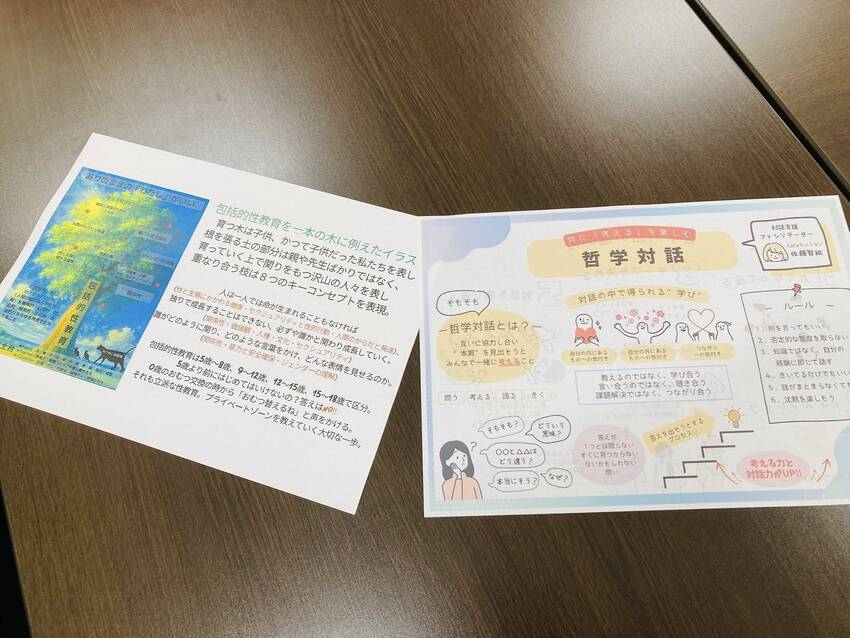 ありのままの「わたし」がいい
包括的性教育
包括的性教育を一本の木に例えたイラス
育つ木は子供、かつて子供だった私たちを表し
根を張る土の部分は親や先生ばかりではなく、
育っていく上で関りをもつ沢山の人々を表し
重なり合う枝は８つのキーコンセプトを表現。
(性と生殖にかかわる健康・セクシュアリティと性的行動・人間のからだと発達)
人は一人では命が生まれることもなければ
独りで成長することはできない。必ずや誰かと関わり成長していく。
(関係性・価値観・人権・文化・セクシュアリティ)
誰がどのように関り、どのような言葉をかけ、どんな表情を見せるのか。
(関係性・暴力と安全確保・ジェンダーの理解)
包括的性教育は5歳～8歳、9～12歳、12～15歳、15～18歳で区分。
5歳より前にはじめてはいけないの？答えはNO!!
0歳のおむつ交換の時から「おむつ替えるね」と声をかける。
それも立派な性教育。プライベートゾーンを教えていく大切な一歩。
共に「考える」を楽しむ
哲学対話
対話支援
ファシリテーター
佐藤智紋
そもそも
哲学対話とは？
互いに協力し合い
“本質”を見出そうと
みんなで一緒に考えること
問う 考える 語る きく
対話の中で得られる“学び”
自分の内にある
ものへの気付き
自分の外にある
ものへの気付き
つながり
への気付き
教えるのではなく、学び合う
言い合うのではなく、聴き合う
課題解決ではなく、つながり合う
ルール
1. 何を言ってもいい
2. 否定的な態度を取らない
3. 知識ではなく、自分の
経験に即して話す
4. きいてるだけでもいい
5. 話がまとまらなくても
6. 沈黙を楽しもう
そもそも？
どういう
意味？
○○と△△は
どう違う？
本当にそう？
なぜ？
答えが
1つとは限らない
すぐに見つからない
ないかもしれない
問い
答えを出そうとする
プロセス
考える力と
対話力がUP!!